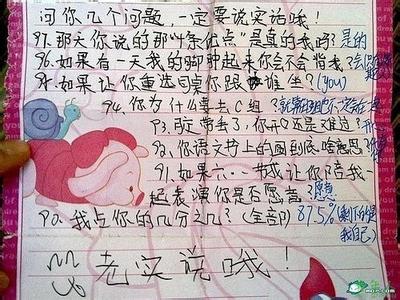 问你几个问题,一定要说实话哦!
97.那天你说的那"条优点"是真的我吗?是的
96.如果有一天我的脚肿起来你会不会背我?会
95.如果让你重选同桌你跟谁坐?(you)
94.你为什么要去C组?就
93.定常丢了,你开还是难过?开
92.你语文书上的圈到底啥意思
91.如果六一节我让你陪我一
起表演你是否愿意?愿意
90.我占你的几分之几?(全部)87.5%(剩下的是
我自己)
老实说哦!